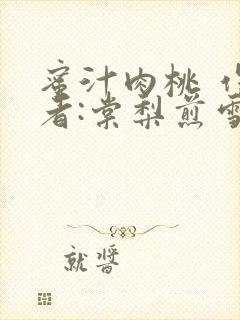 蜜汁肉桃 作
者:棠梨煎雪
就醬